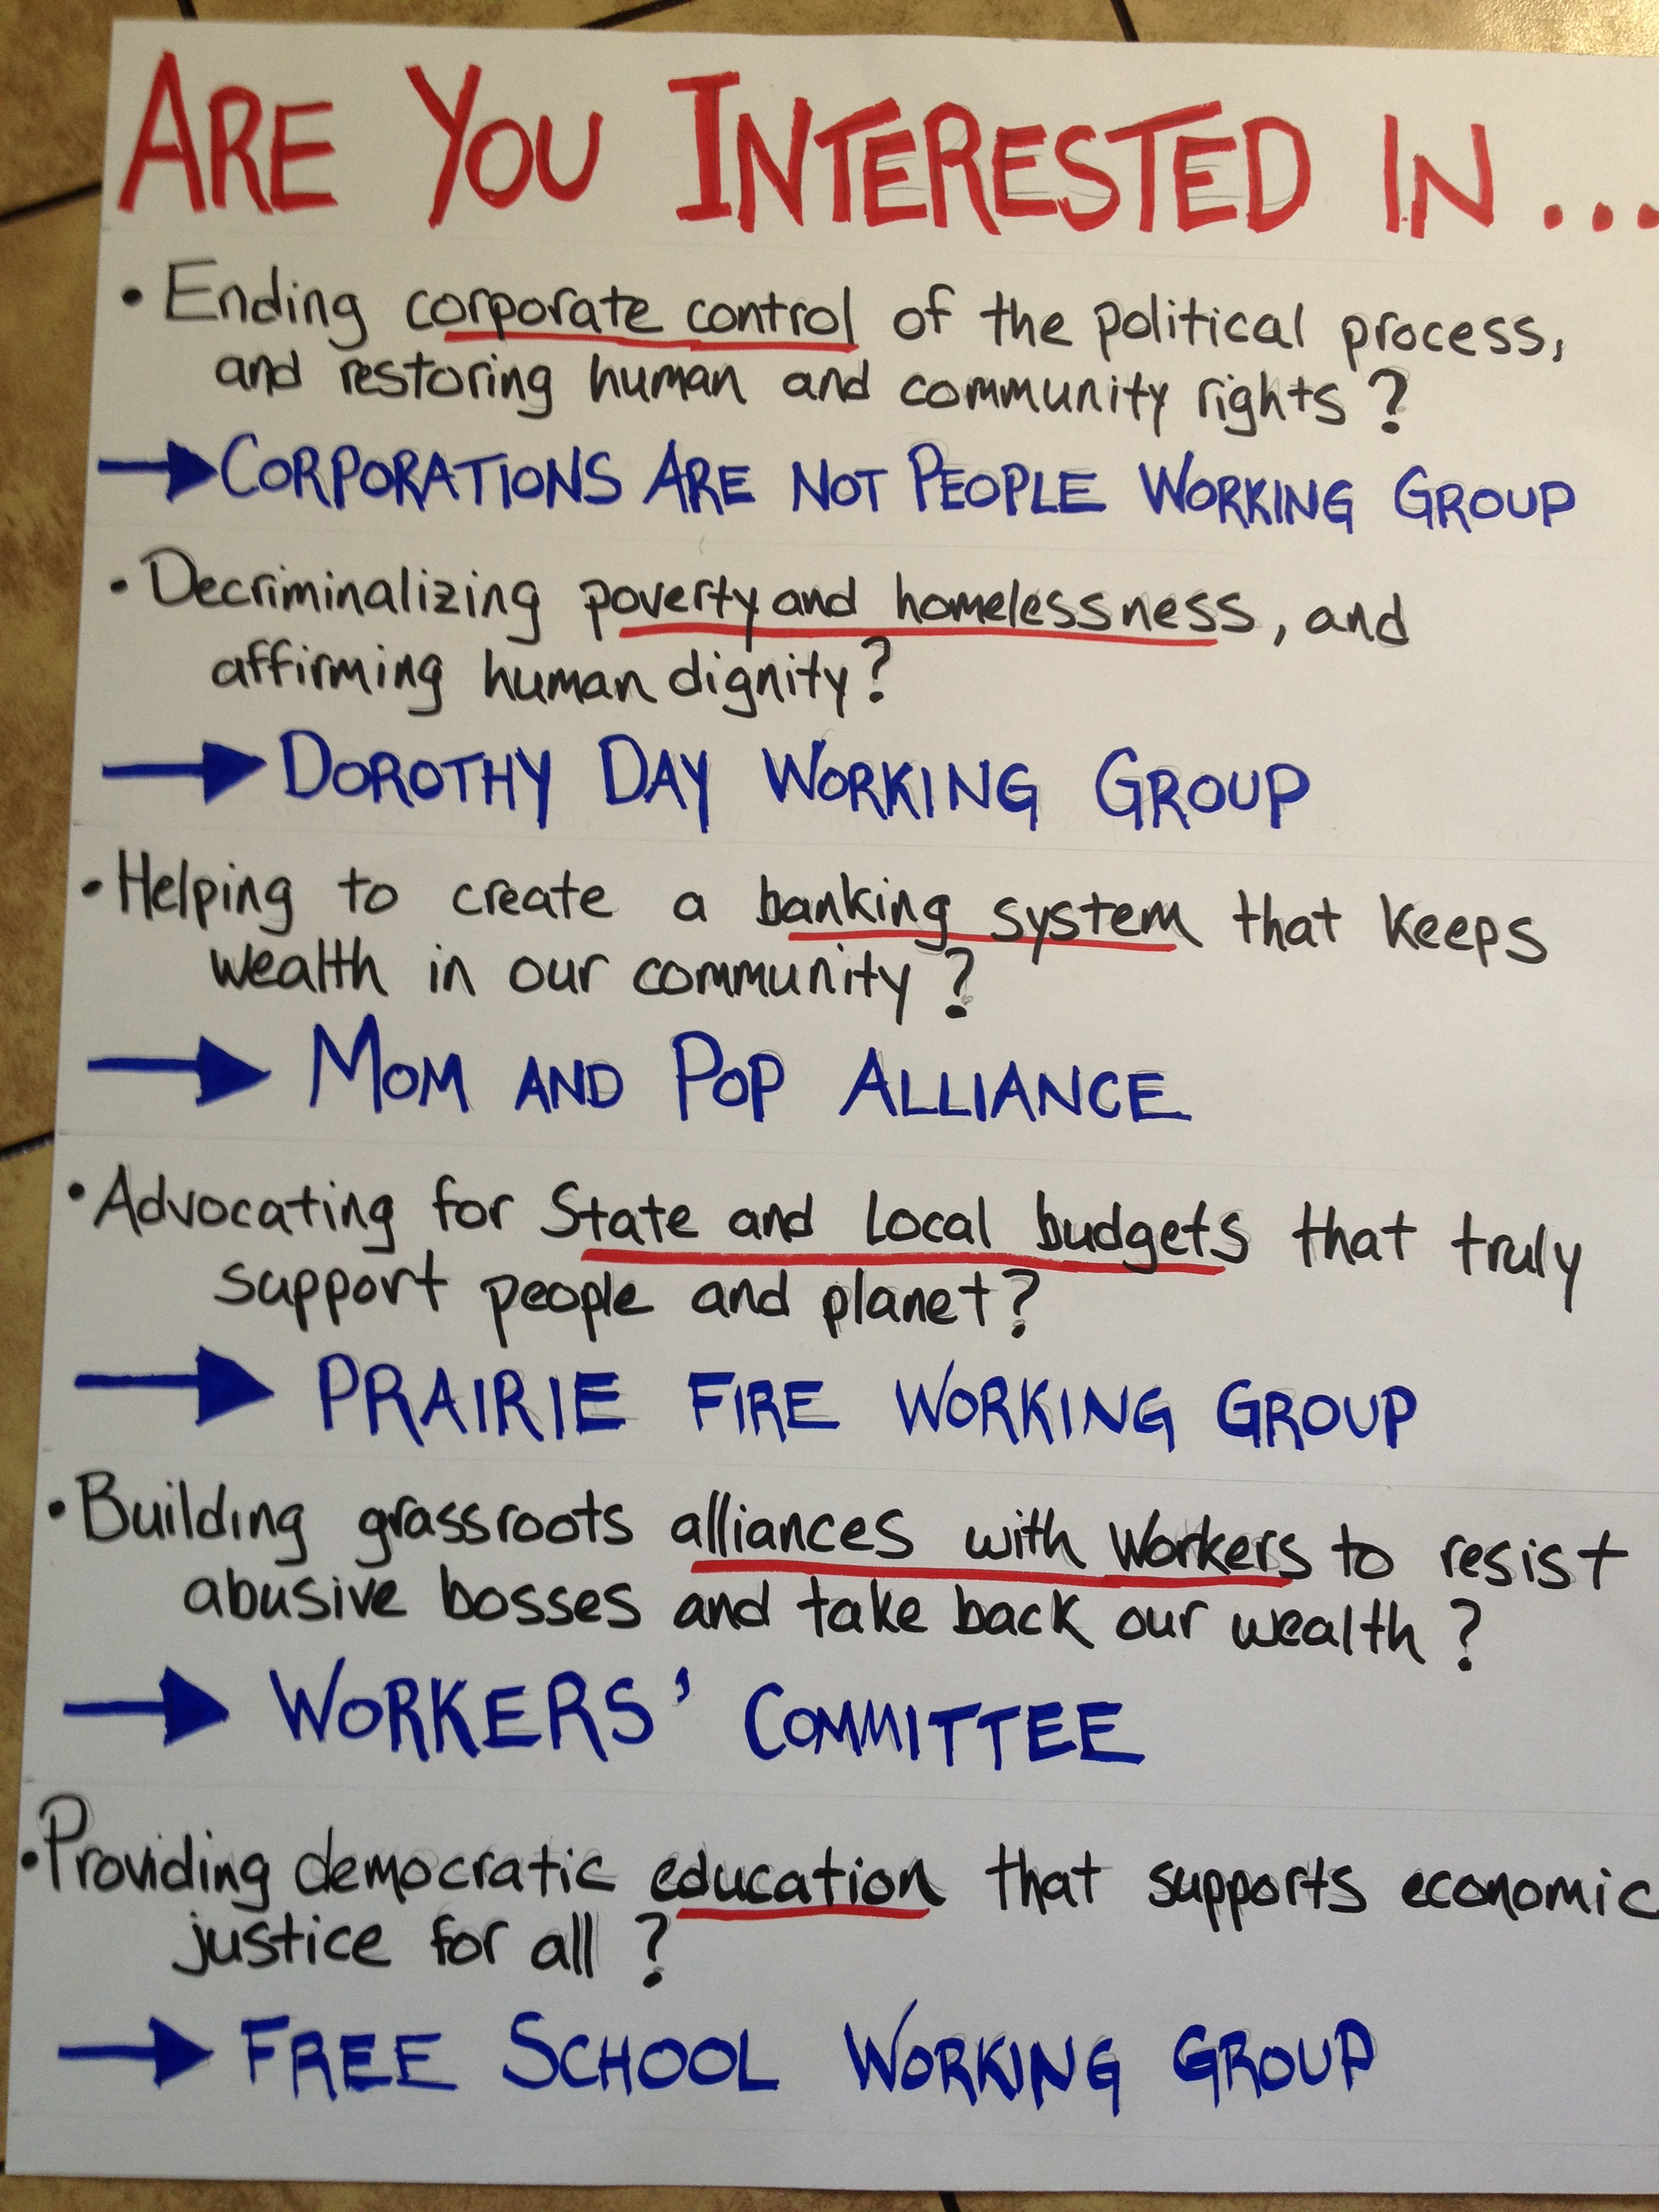 ARE YOU INTERESTED IN...
• Ending corporate control of the political process,
and restoring human and community rights?
→ CORPORATIONS ARE NOT PEOPLE WORKING GROUP
• Decriminalizing poverty and homelessness, and
affirming human dignity?
→ DOROTHY DAY WORKING GROUP
• Helping to create a banking system that keeps
wealth in our community?
→ MOM AND POP ALLIANCE
• Advocating for State and Local budgets that truly
support people and planet?
→ PRAIRIE FIRE WORKING GROUP
• Building grassroots alliances with workers to resist
abusive bosses and take back our wealth?
→ WORKERS' COMMITTEE
• Providing democratic education that supports economic
justice for all?
→ FREE SCHOOL WORKING GROUP